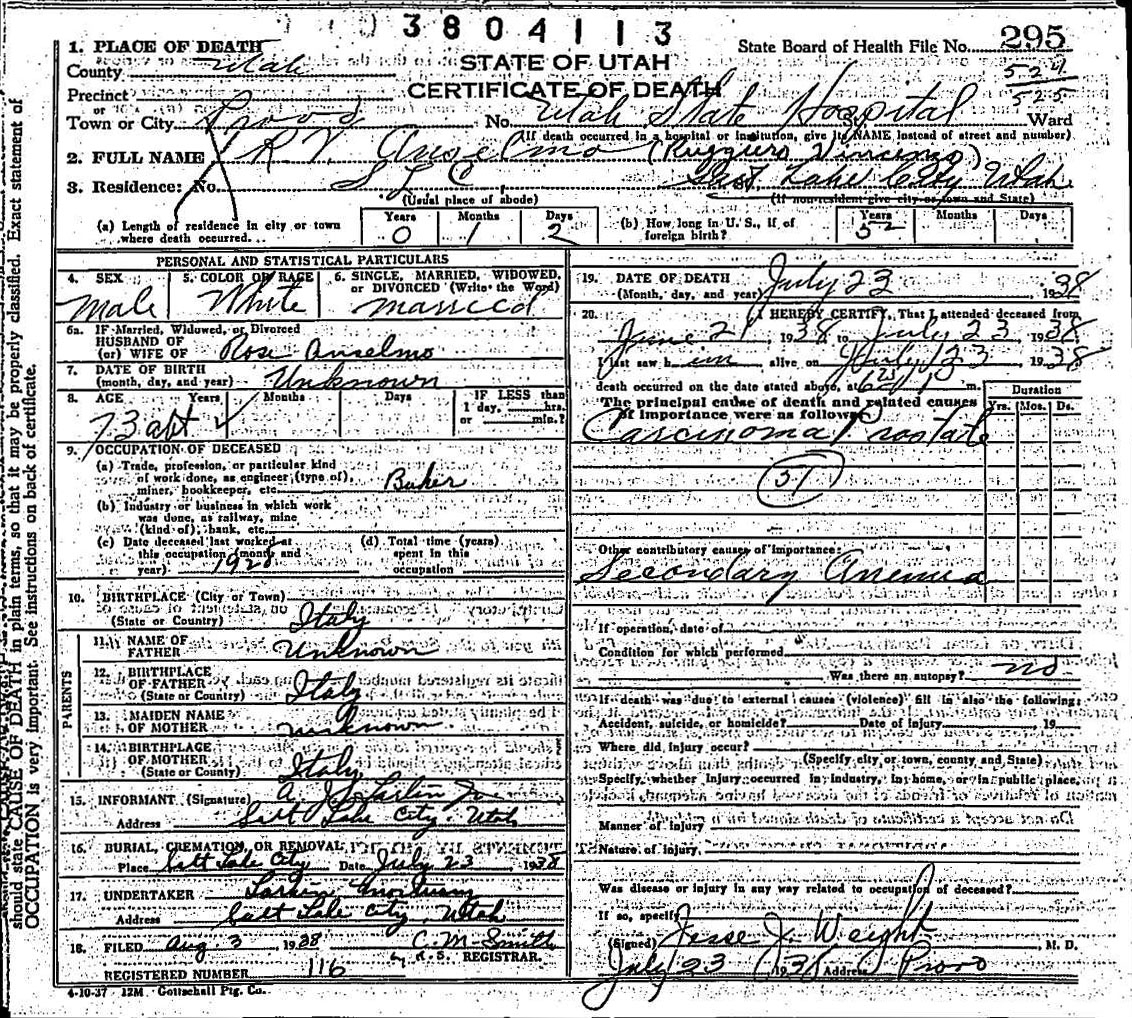 3804113
1. PLACE OF DEATH
State Board of Health File No. 295
County Utah
STATE OF UTAH
524
525
Precinct
CERTIFICATE OF DEATH
or
Town or City Provo No. Utah State Hospital St. Ward
(If death occurred in a hospital or institution, give its NAME instead of street and number)
2. FULL NAME R. V. Anselmo (Ruggero Vincenzo)
3. Residence: No. S L C, St. Salt Lake City Utah
(Usual place of abode) (If non-resident give city or town and State)
(a) Length of residence in city or town where death occurred... Years 0 Months 1 Days 2
(b) How long in U. S., if of foreign birth? Years 52 Months Days
PERSONAL AND STATISTICAL PARTICULARS
4. SEX Male
5. COLOR OR RACE White
6. SINGLE, MARRIED, WIDOWED, or DIVORCED (Write the Word) Married
6a. IF Married, Widowed, or Divorced
HUSBAND OF
(or) WIFE OF Rose Anselmo
7. DATE OF BIRTH
(month, day, and year) Unknown
8. AGE Years 73 abt Months Days IF LESS than
1 day, hrs.
or min.?
9. OCCUPATION OF DECEASED
(a) Trade, profession, or particular kind
of work done, as engineer (type of),
miner, bookkeeper, etc. Baker
(b) Industry or business in which work
was done, as railway, mine
(kind of), bank, etc.
(c) Date deceased last worked at
this occupation (month and
year) 1928
(d) Total time (years)
spent in this
occupation
10. BIRTHPLACE (City or Town)
(State or Country) Italy
PARENTS
11. NAME OF
FATHER Unknown
12. BIRTHPLACE
OF FATHER
(State or Country) Italy
13. MAIDEN NAME
OF MOTHER unknown
14. BIRTHPLACE
OF MOTHER
(State or Country) Italy
15. INFORMANT (Signature) A. J. Larkin
Address Salt Lake City, Utah
16. BURIAL, CREMATION, OR REMOVAL
Place Salt Lake City Date July 23, 1938
17. UNDERTAKER Larkin Mortuary
Address Salt Lake City, Utah
18. FILED Aug 3 1938 C. M. Smith
REGISTRAR.
REGISTERED NUMBER 116
4-10-37 12M Gottschall Ptg. Co.
19. DATE OF DEATH
(Month, day, and year) July 23, 1938
20. I HEREBY CERTIFY, That I attended deceased from
June 21 1938 to July 23 1938
I last saw him alive on July 23 1938
death occurred on the date stated above, at m.
The principal cause of death and related causes
of importance were as follows:
Duration
Yrs. Mos. Ds.
Carcinoma Prostate
51
Other contributory causes of importance:
Secondary Anemia
If operation, date of
Condition for which performed
Was there an autopsy? no
If death was due to external causes (violence) fill in also the following:
Accident, suicide, or homicide? Date of injury 19
Where did injury occur?
(Specify city or town, county and State)
Specify whether injury occurred in industry, in home, or in public place,
Manner of injury
Nature of injury
Was disease or injury in any way related to occupation of deceased?
If so, specify
(Signed) Jesse J. Weight M. D.
July 23 1938 Address Provo
should state CAUSE OF DEATH in plain terms, so that it may be properly classified. Exact statement of
OCCUPATION is very important. See instructions on back of certificate.